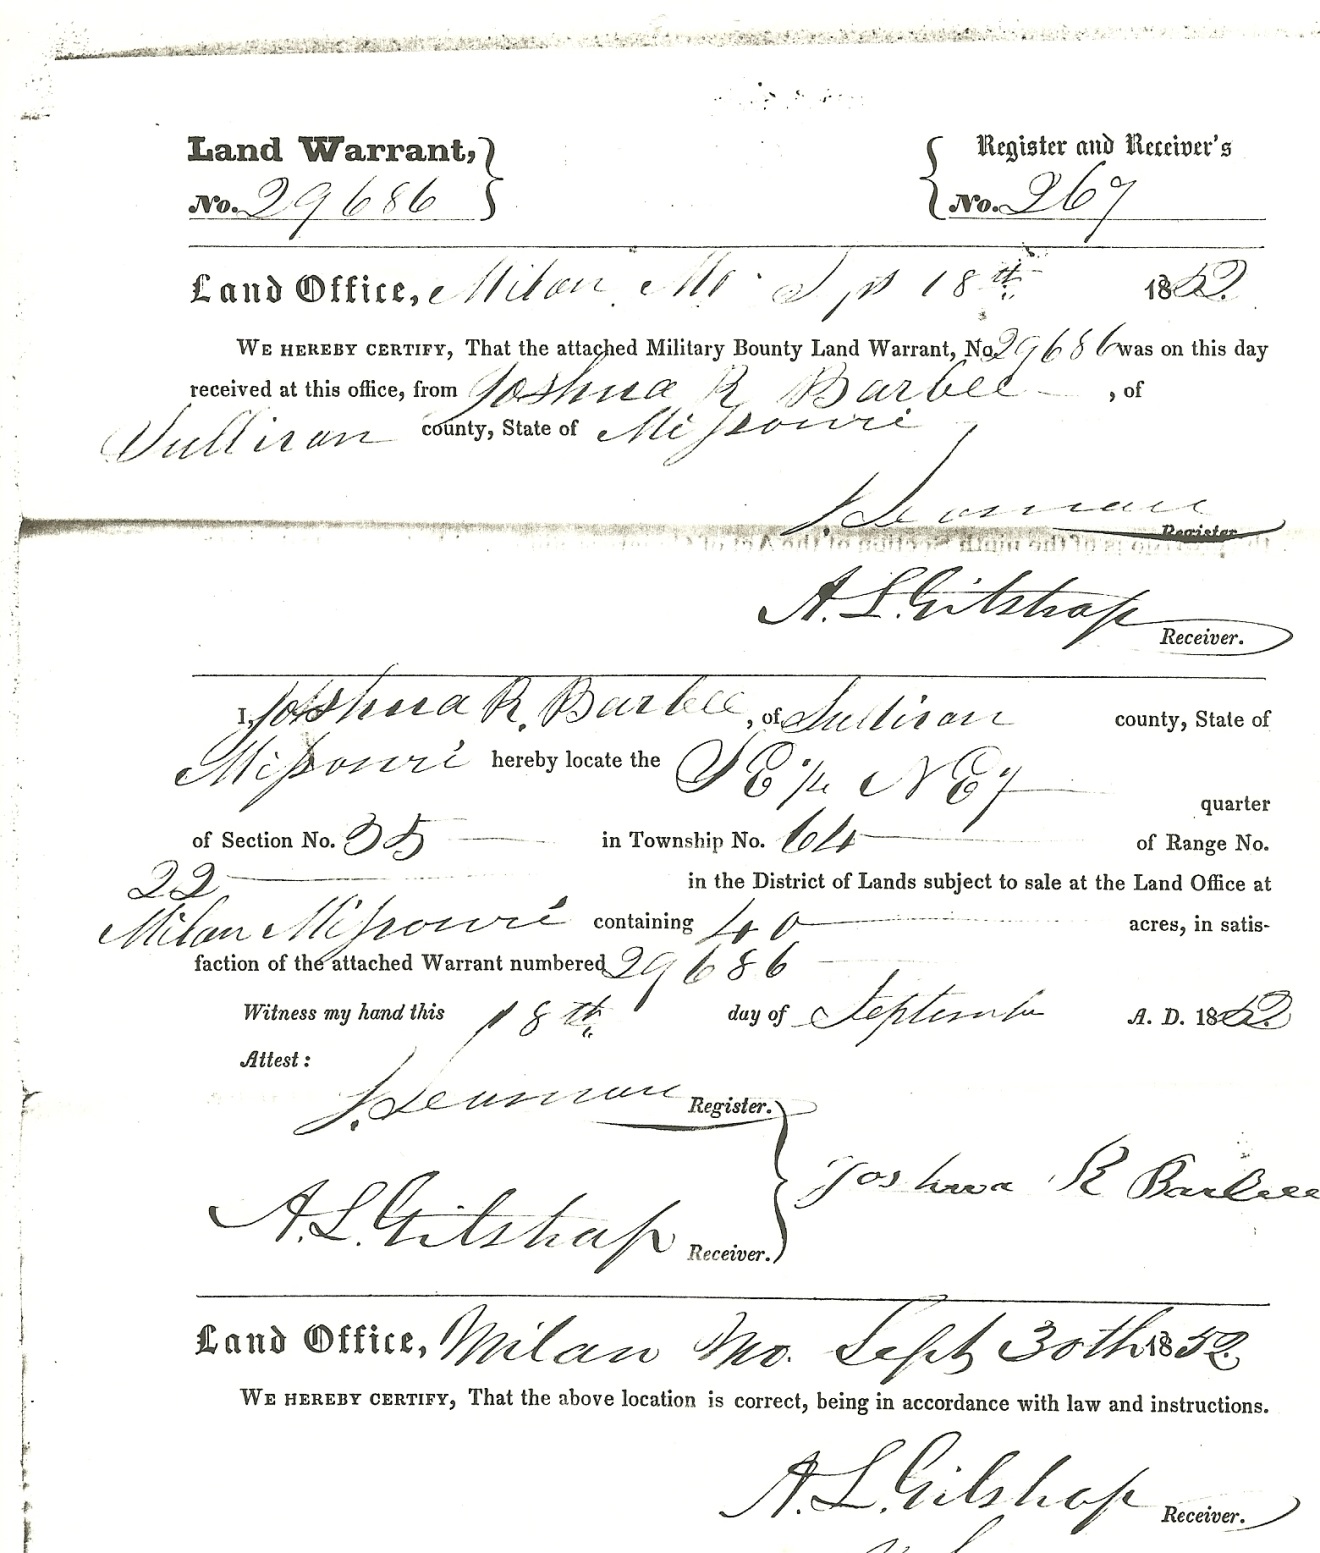 Land Warrant, Register and Receiver's
No. 29686 No. 267
Land Office, Milan Mo. Sept 18th 1852.
WE HEREBY CERTIFY, That the attached Military Bounty Land Warrant, No. 29686 was on this day
received at this office, from Joshua R Barbee, of
Sullivan county, State of Missouri
Register
A. L. Gilstrap
Receiver.
I, Joshua R. Barbee, of Sullivan county, State of
Missouri hereby locate the SE 1/4 NE 1/4
quarter
of Section No. 35 in Township No. 64 of Range No.
22 in the District of Lands subject to sale at the Land Office at
Milan Missouri containing 40 acres, in satis-
faction of the attached Warrant numbered 29686
Witness my hand this 18th day of September A. D. 1852.
Attest:
Register.
Joshua R Barbee
A. L. Gilstrap Receiver.
Land Office, Milan Mo. Sept 30th 1852.
WE HEREBY CERTIFY, That the above location is correct, being in accordance with law and instructions.
A. L. Gilstrap
Receiver.